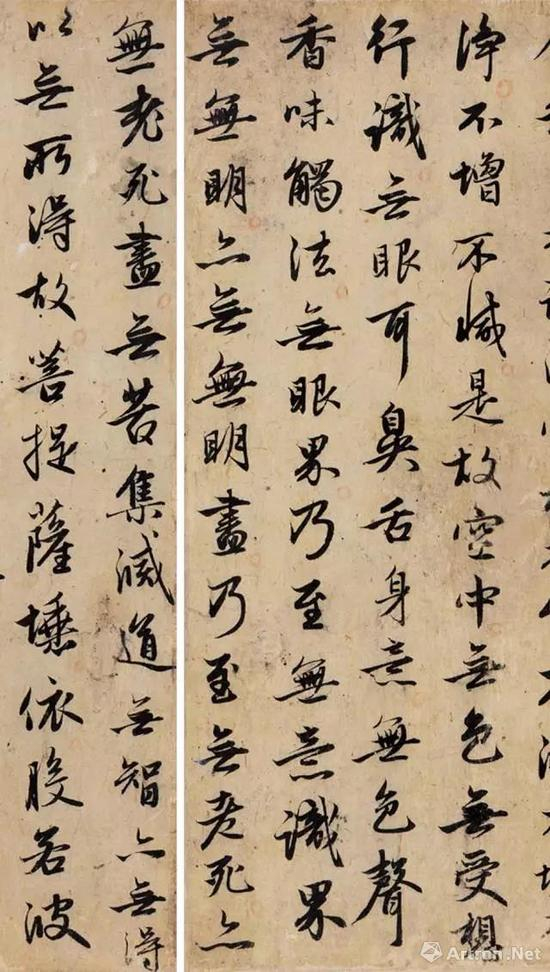 淨不增不減是故空中無色無受想
行識無眼耳鼻舌身意無色聲
香味觸法無眼界乃至無意識界
無無明亦無無明盡乃至無老死亦
無老死盡無苦集滅道無智亦無得
以無所得故菩提薩埵依般若波
Artron.Net